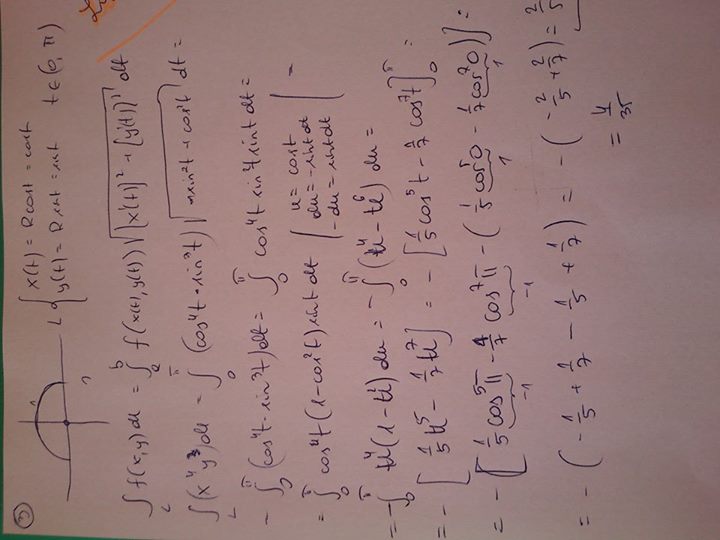 3)
1 1
L { x(t) = R cost = cost
y(t) = R sint = sint t ∈ (0, π)
∫_L f(x,y) dl = ∫_a^b f(x(t), y(t)) √([x'(t)]² + [y'(t)]²) dt
∫_L (x⁴y³) dl = ∫_0^π (cos⁴t · sin³t) √(sin²t + cos²t) dt =
= ∫_0^π (cos⁴t · sin³t) dt = ∫_0^π cos⁴t sin²t sint dt =
= ∫_0^π cos⁴t (1 - cos²t) sint dt | u = cost du = -sint dt -du = sint dt | =
= -∫_0^π u⁴(1 - u²) du = -∫_0^π (u⁴ - u⁶) du =
= - [1/5 u⁵ - 1/7 u⁷] = - [1/5 cos⁵t - 1/7 cos⁷t]_0^π =
= - [1/5 cos⁵π - 1/7 cos⁷π - (1/5 cos⁵0 - 1/7 cos⁷0)] =
-1 -1 1 1
= - (-1/5 + 1/7 - 1/5 + 1/7) = - (-2/5 + 2/7) = 2/5
= 4/35